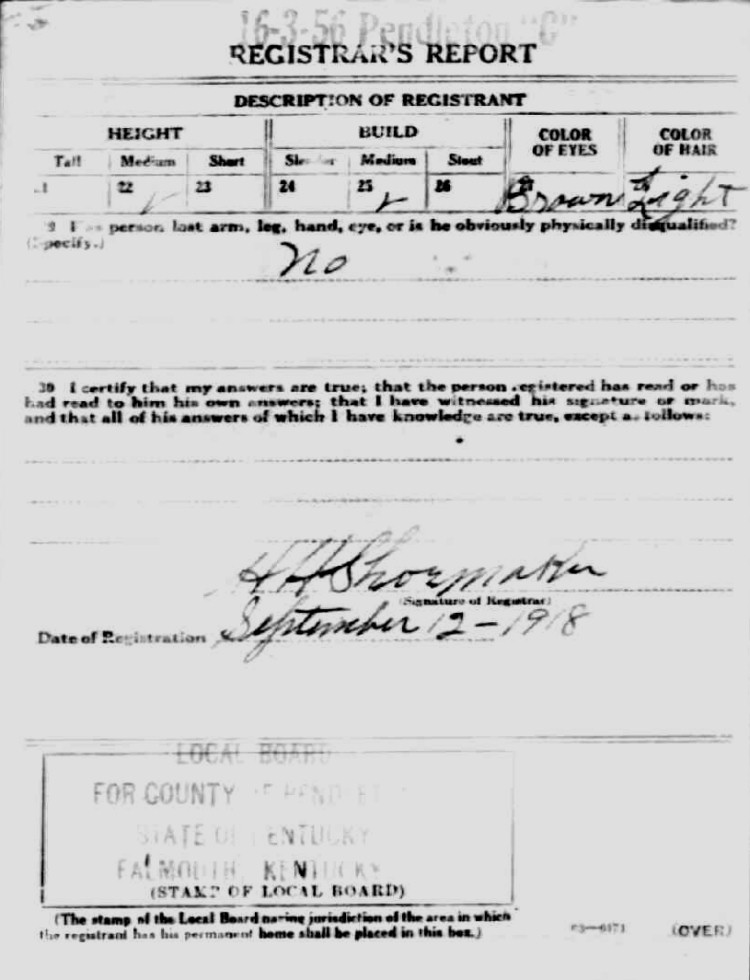 16-3-56 Pendleton "C"
REGISTRAR'S REPORT
DESCRIPTION OF REGISTRANT
HEIGHT BUILD COLOR OF EYES COLOR OF HAIR
Tall Medium Short Slender Medium Stout
22 23 24 25 26
Brown Light
person lost arm, leg, hand, eye, or is he obviously physically disqualified?
(Specify.)
No
30 I certify that my answers are true; that the person registered has read or has
had read to him his own answers; that I have witnessed his signature or mark,
and that all of his answers of which I have knowledge are true, except as follows:
H H Shoemaker
(Signature of Registrar)
Date of Registration September 12-1918
LOCAL BOARD
FOR COUNTY OF PENDLETON
STATE OF KENTUCKY
FALMOUTH, KENTUCKY
(STAMP OF LOCAL BOARD)
(The stamp of the Local Board having jurisdiction of the area in which
the registrant has his permanent home shall be placed in this box.)
(OVER)